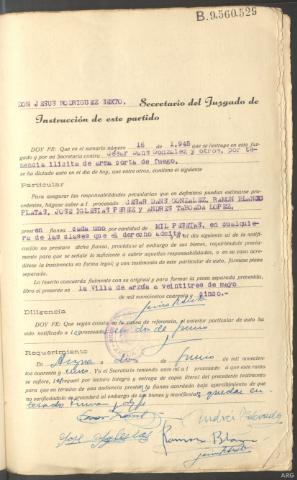 B.9560529
DON JESUS RODRIGUEZ SEXTO, Secretario del Juzgado de
Instrucción de este partido
DOY FE: Que en el sumario número 16 de 1.945 que se instruye en este Juz-
gado y por mi Secretaría contra César Dans González y otros, por te-
nencia ilícita de arma corta de fuego,
se ha dictado auto en el día de hoy, que entre otros, contiene el siguiente
Particular
Para asegurar las responsabilidades pecuniarias que en definitiva puedan estimarse proce-
dentes, hágase saber a l procesado CESAR DANS GONZALEZ, RAMON BLANCO
PLATAS, JOSE IGLESIAS PEREZ y ANDRES TABOADA LOPEZ,
presten fianza cada uno por cantidad de MIL PESETAS, en cualquie-
ra de las clases que el derecho admite,
no prestare dicha fianza, procédase al embargo de sus bienes, requiriéndole
para que se señale
la insolvencia en forma legal; y con testimonio de este particular de auto, fórmese pieza
separada.
Lo inserto concuerda fielmente con su original y para formar la pieza separada prevenida,
libro el presente en la Villa de Arzúa a veintitres de mayo
de mil novecientos cuarenta y cinco.-
Diligencia
DOY FE: Que según consta en la causa de referencia, el anterior particular de auto ha
sido notificado a l procesado dos de junio
Requerimiento
En Arzúa a dos de junio de mil novecien-
tos cuarenta y cinco. Yo el Secretario teniendo ante mi a l procesado a que este ramo
se refiere, le requerí por lectura íntegra y entrega de copia literal del precedente instrumento
para que en término de una audiencia preste la fianza acordada bajo apercibimiento de que
no verificándolo se procederá al embargo de sus bienes y manifestó quedar en-
terado firma y doy fe
Andrés Taboada
José Yglesias
Ramon Blanco
ARG